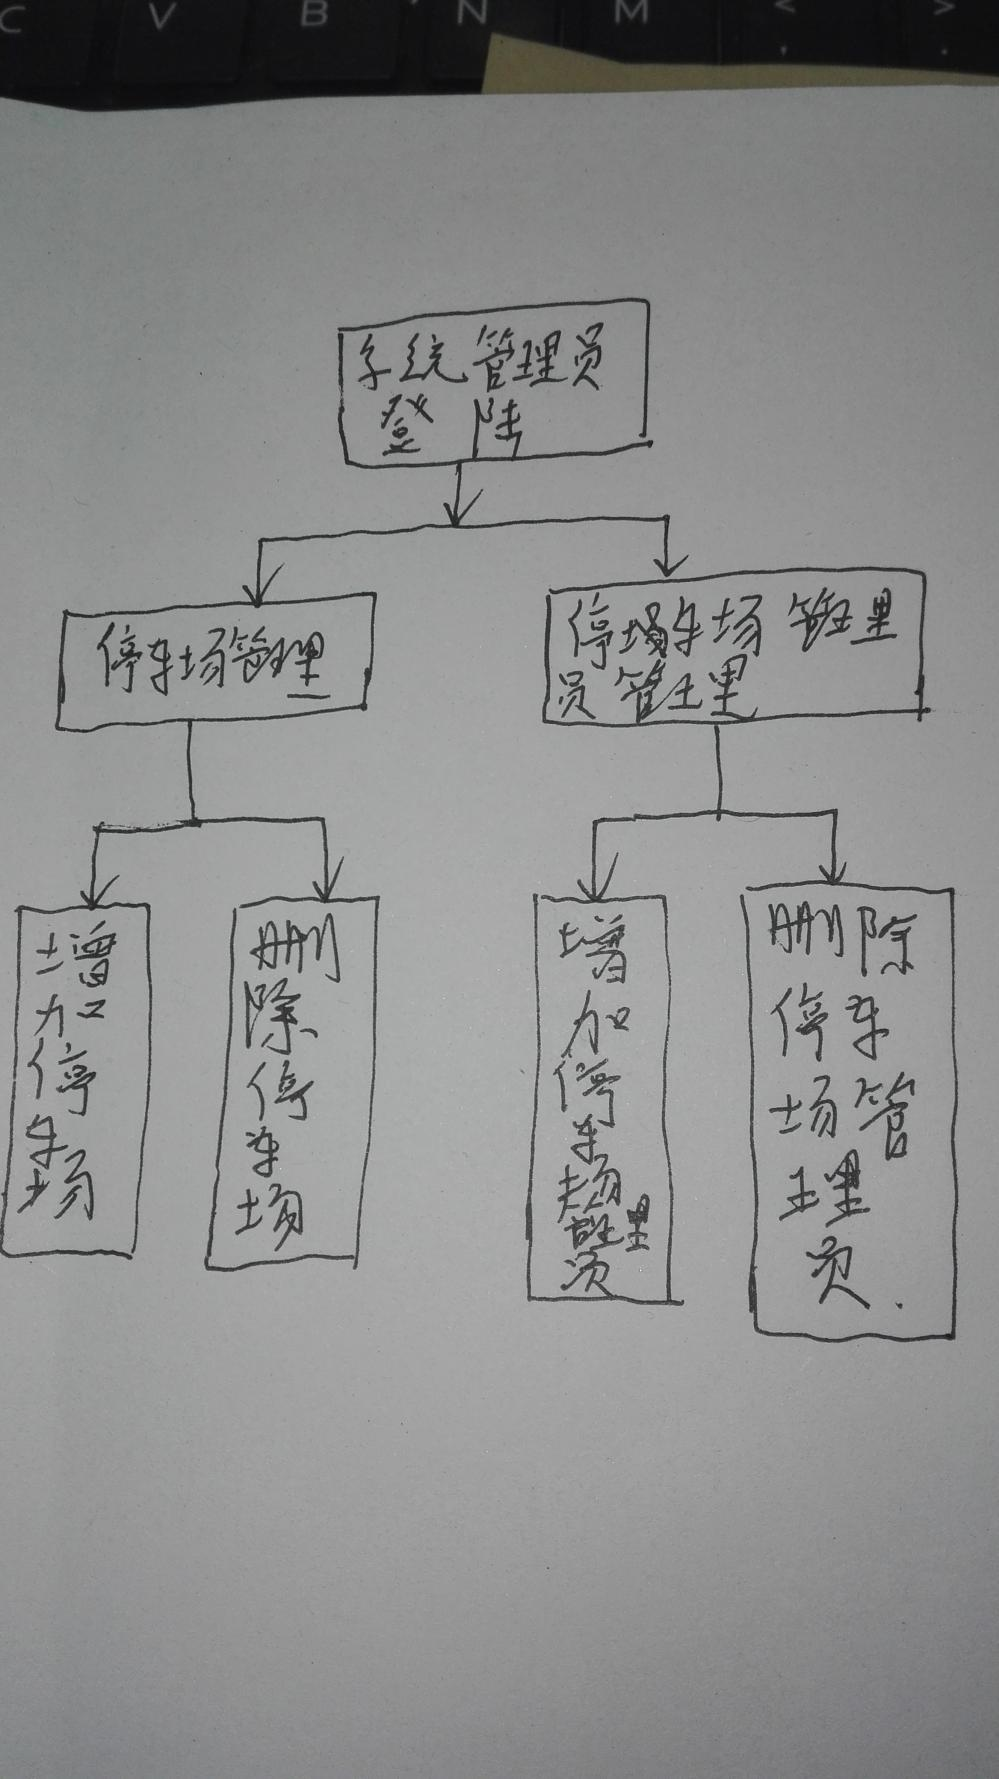 C V B N M < >
, .
系统管理员
登陆
停车场管理
停车场管理
员管理
增
加
停
车
场
删
除
停
车
场
增
加
停
车
场
管理
员
删除
停车
场管
理
员.